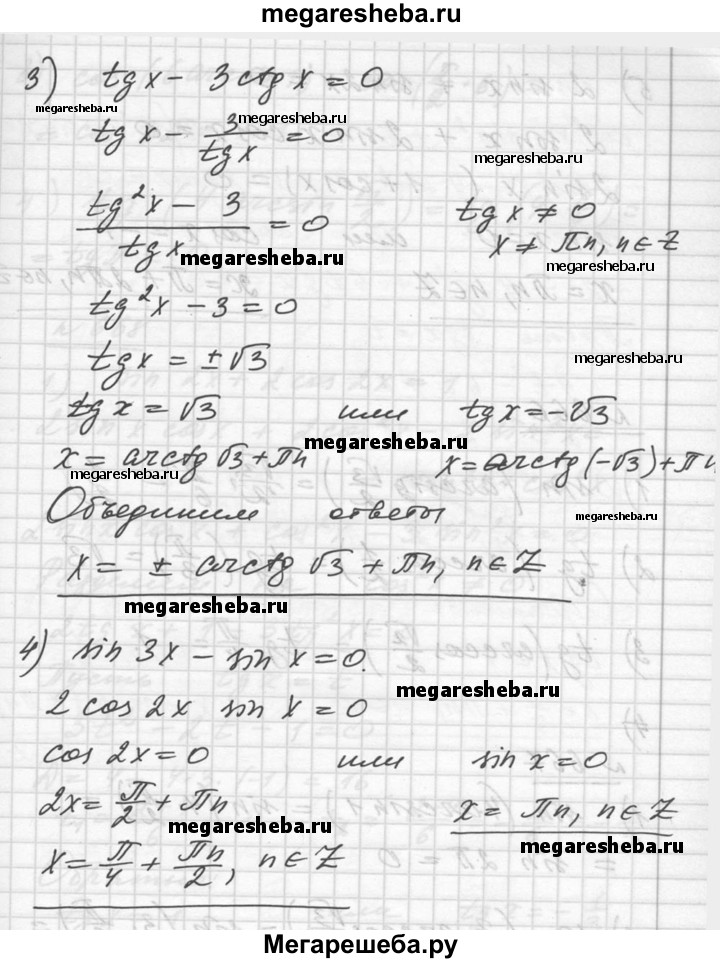 megaresheba.ru
3) tg x - 3 ctg x = 0
megaresheba.ru
megaresheba.ru
tg x - 3/tg x = 0
megaresheba.ru
(tg²x - 3)/tg x = 0 tg x ≠ 0
x ≠ πn, n ∈ Z
megaresheba.ru
megaresheba.ru
tg²x - 3 = 0
tg x = ± √3
megaresheba.ru
tg x = √3 или tg x = - √3
megaresheba.ru
x = arctg √3 + πn x = arctg (-√3) + πn
megaresheba.ru
Объединим ответы
megaresheba.ru
x = ± arctg √3 + πn, n ∈ Z
megaresheba.ru
4) sin 3x - sin x = 0.
megaresheba.ru
2 cos 2x sin x = 0
cos 2x = 0 или sin x = 0
2x = π/2 + πn x = πn, n ∈ Z
megaresheba.ru
megaresheba.ru
x = π/4 + πn/2, n ∈ Z
Мегарешеба.ру